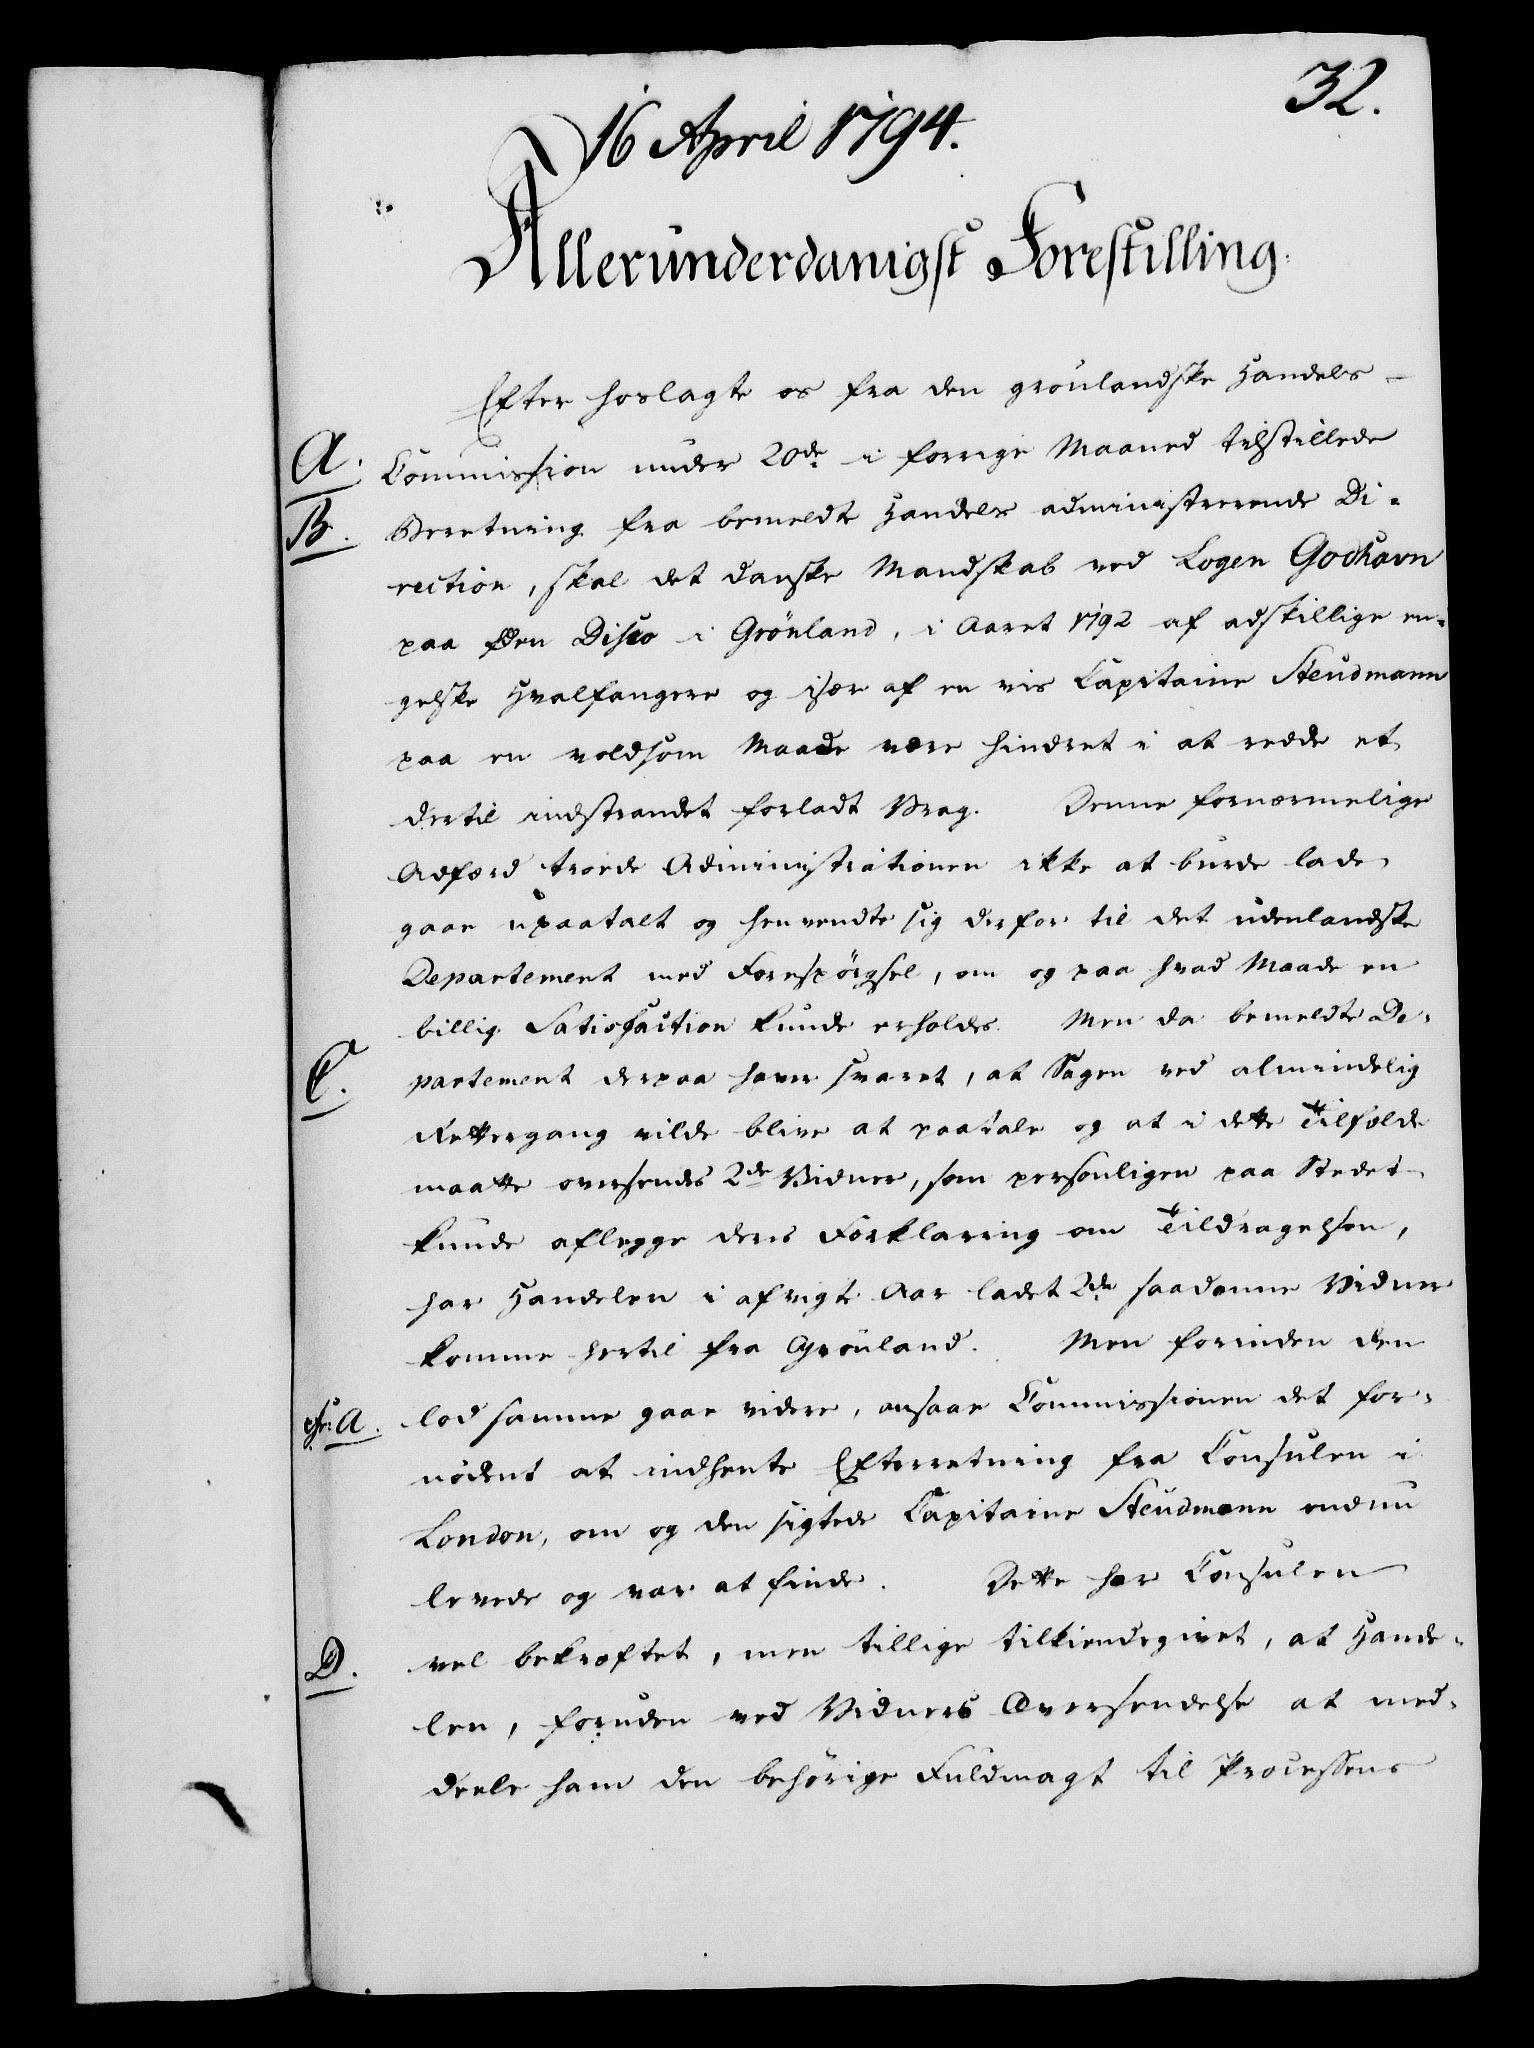 32.
16 April 1794.
Allerunderdanigst Forestilling.
Efter hoslagte os fra den grönlandske Handels-
A. Commission under 20de i forrige Maaned tilstillede
B. Beretning fra bemeldte Handels administrerende Di-
rection, skal det danske Mandskab ved Logen Godhavn
paa Øen Disco i Grönland, i Aaret 1792 af adskillige en-
gelske Hvalfangere og især af en vis Capitaine Steudmann
paa en voldsom Maade være hindret i at redde et
dertil indstrandet forladt Vrag. Denne fornærmelige
Adfærd troede Administrationen ikke at burde lade
gaae upaatalt og henvendte sig derfor til det udenlandske
Departement med Forespörgsel, om og paa hvad Maade en
billig Satisfaction kunde erholdes. Men da bemeldte De-
C. partement derpaa haver svaret, at Sagen ved almindelig
Rettergang vilde blive at paatale og at i dette Tilfælde
maatte oversendes 2de Vidner, som personligen paa Stedet
kunde aflegge deres Forklaring om Tildragelsen,
har Handelen i afvigte Aar ladet 2de saadanne Vidner
komme hertil fra Grönland. Men forinden den
cfr: A. lod samme gaae videre, ansaae Commissionen det for-
nödent at indhente Efterretning fra Consulen i
London, om og den sigtede Capitaine Steudmann endnu
levede og var at finde. Dette har Consulen
D. vel bekræftet, men tillige tilkiendegivet, at Hande-
len, foruden ved Vidners Oversendelse at med-
deele ham den behörige Fuldmagt til Processens